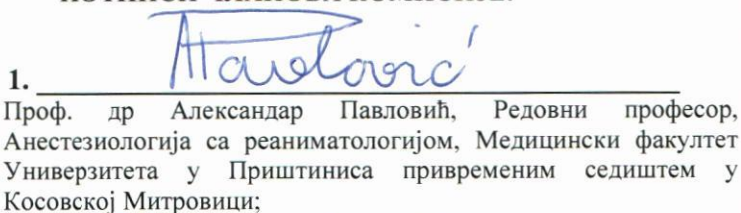 1. APavlović
Проф. др Александар Павловић, Редовни професор,
Анестезиологија са реаниматологијом, Медицински факултет
Универзитета у Приштиниса привременим седиштем у
Косовској Митровици;